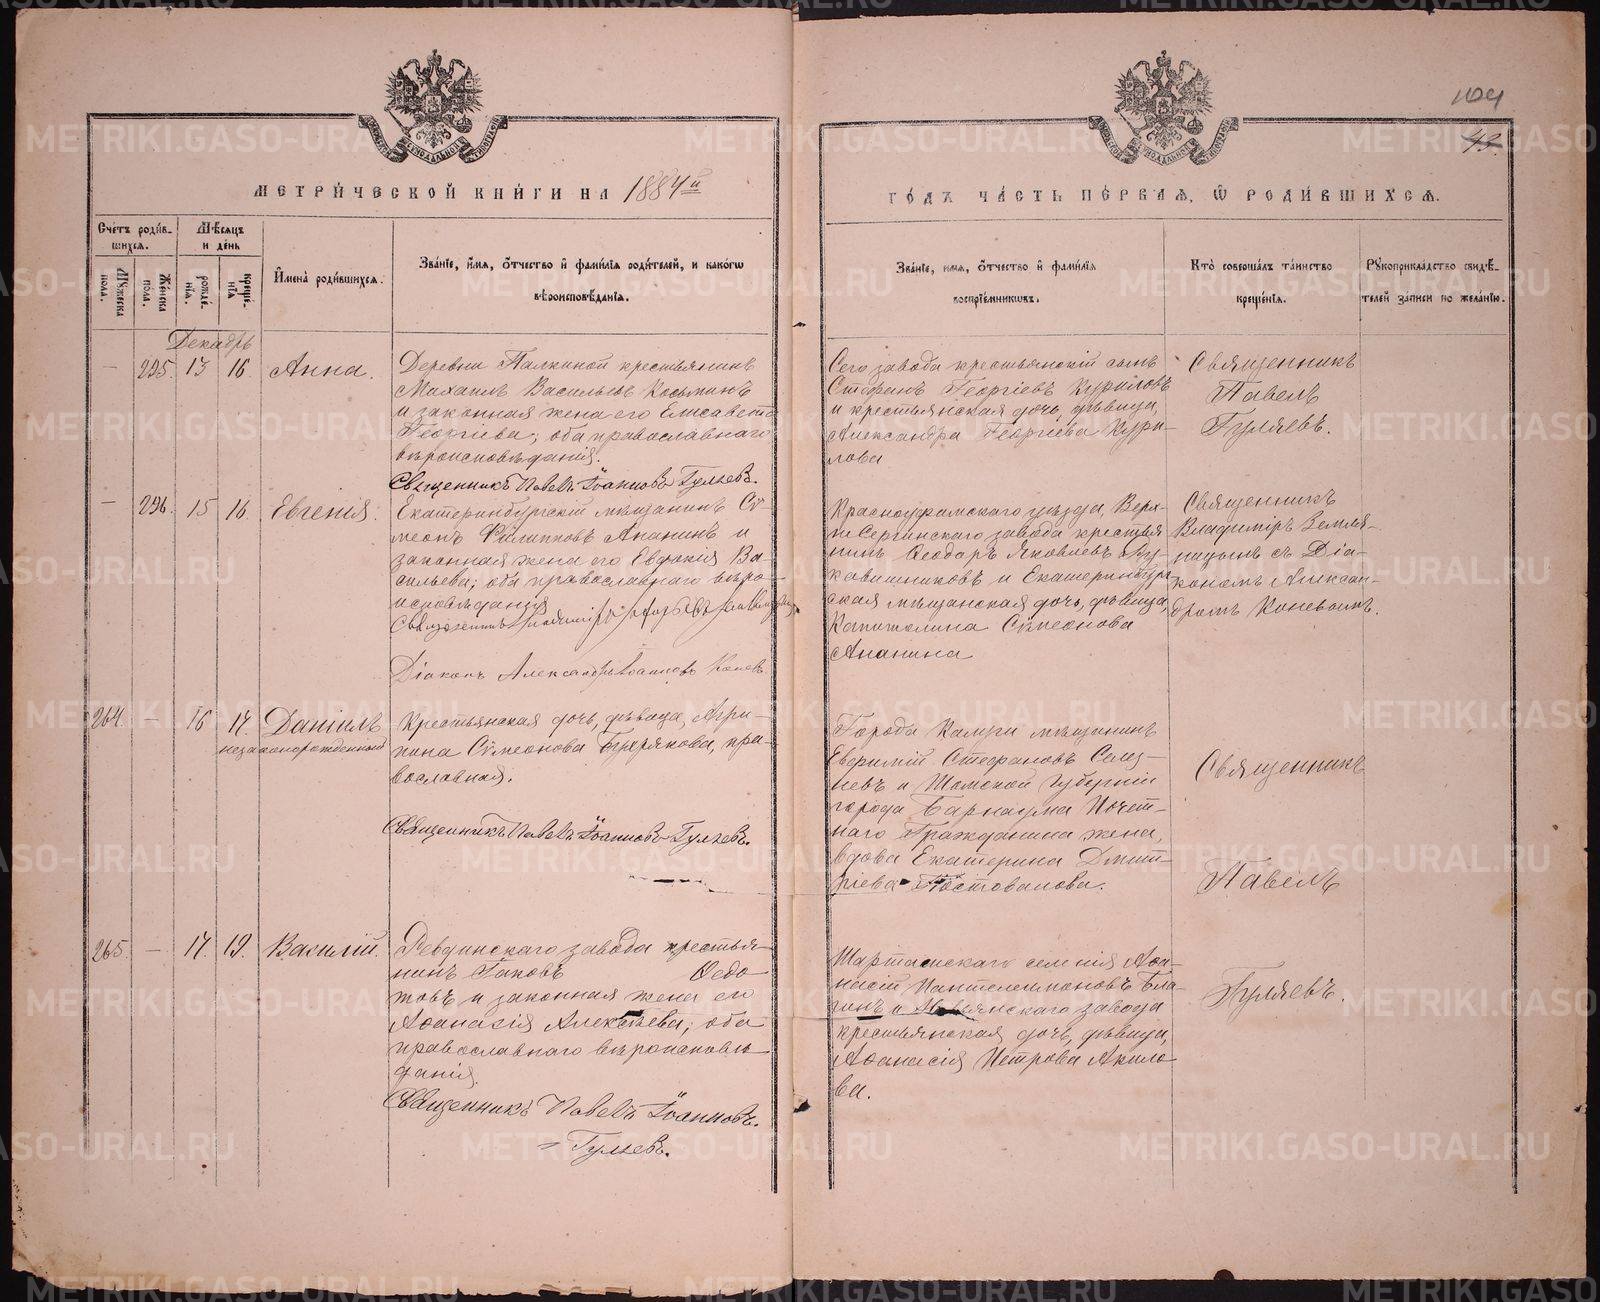 104
43.
МЕТРИЧЕСКОЙ КНИГИ НА 1884й
ГОДЪ ЧАСТЬ ПЕРВАЯ, Ѿ РОДИВШИХСЯ.
Счетъ родив-
шихся.
Мѣсяцъ
и день
Мужеска
пола.
Женска
пола.
рожде-
нїя.
креще-
нїя
Имена родившихся.
Званїе, имя, отчество и фамилїя родителей, и какогѡ
вѣроисповѣданїя.
Званїе, имя, отчество и фамилїя
воспрїемниковъ.
Кто совершалъ таинство
крещенїя.
Рукоприкладство свидѣ-
телей записи по желанїю.
Декабрь
— 225. 13 16. Анна.
Деревни Палкиной крестьянинъ
Михаилъ Васильевъ Косьминъ
и законная жена его Елисавета
Георгіева; оба православнаго
вѣроисповѣданія.
Священникъ Павелъ Іоанновъ Гуляевъ.
Сего завода крестьянскій сынъ
Стефанъ Георгіевъ Куриловъ
и крестьянская дочь, дѣвица,
Александра Георгіева Кури-
лова
Священникъ
Павелъ
Гуляевъ.
— 226. 15 16. Евгенія.
Екатеринбургскій мѣщанинъ Сѵ-
меонъ Филипповъ Ананинъ и
законная жена его Евдокія Ва-
сильева; оба православнаго вѣро-
исповѣданія
Священникъ
Діаконъ Александръ Іоанновъ Коневъ
Красноуфимскаго уѣзда, Верх-
не Сергинскаго завода крестья-
нинъ Ѳеодоръ Яковлевъ Лу-
кавишниковъ и Екатеринбург-
ская мѣщанская дочь, дѣвица,
Капитолина Сѵмеонова
Ананина
Священникъ
Владиміръ Земля-
ницынъ съ Діа-
кономъ Алексан-
дромъ Коневымъ.
264. — 16 17. Даніилъ
незаконорожденный
Крестьянская дочь, дѣвица, Агри-
пина Сѵмеонова Бурлякова, пра-
вославная.
Священникъ Павелъ Іоанновъ Гуляевъ.
Города Калуги мѣщанинъ
Евфимій Стефановъ Селез-
невъ и Томской губерніи
города Барнаула Почет-
наго Гражданина жена,
вдова Екатерина Дмит-
ріева Постованова.
Священникъ
Павелъ
Гуляевъ.
265. — 17. 19. Василій.
Ревдинскаго завода крестья-
нинъ Іаковъ Ѳедо-
товъ и законная жена его
Аѳанасія Алексѣева; оба
православнаго вѣроисповѣ-
данія.
Священникъ Павелъ Іоанновъ.
= Гуляевъ.
Шарташскаго селенія Аѳа-
насій Пантелеимоновъ Бла-
гинъ и Невьянскаго завода
крестьянская дочь, дѣвица,
Аѳанасія Петрова Акило-
ва.